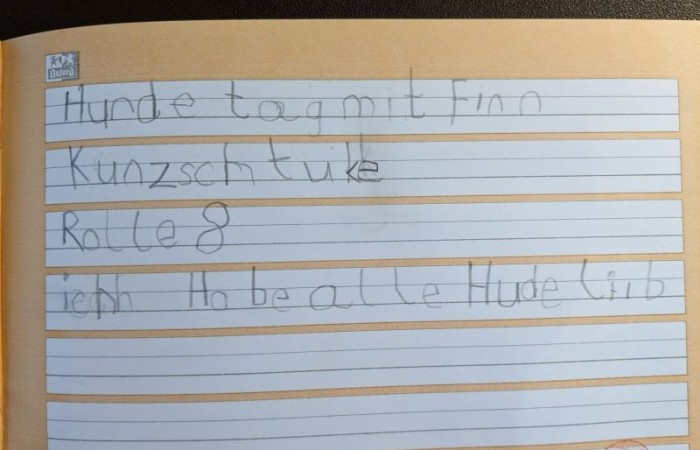 Oxford
Hunde tag mit Finn
Kunzschtuke
Rolle 8
ichh Habe alle Hude Liib